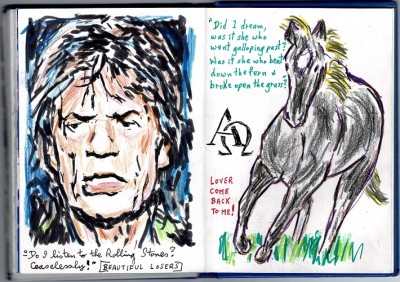 "Do I listen to the Rolling Stones?
Ceaselessly!" BEAUTIFUL LOSERS
"Did I dream,
was it she who
went galloping past?
Was it she who bent
down the fern &
broke open the grass?"
ΑΩ
LOVER
COME
BACK
TO ME!